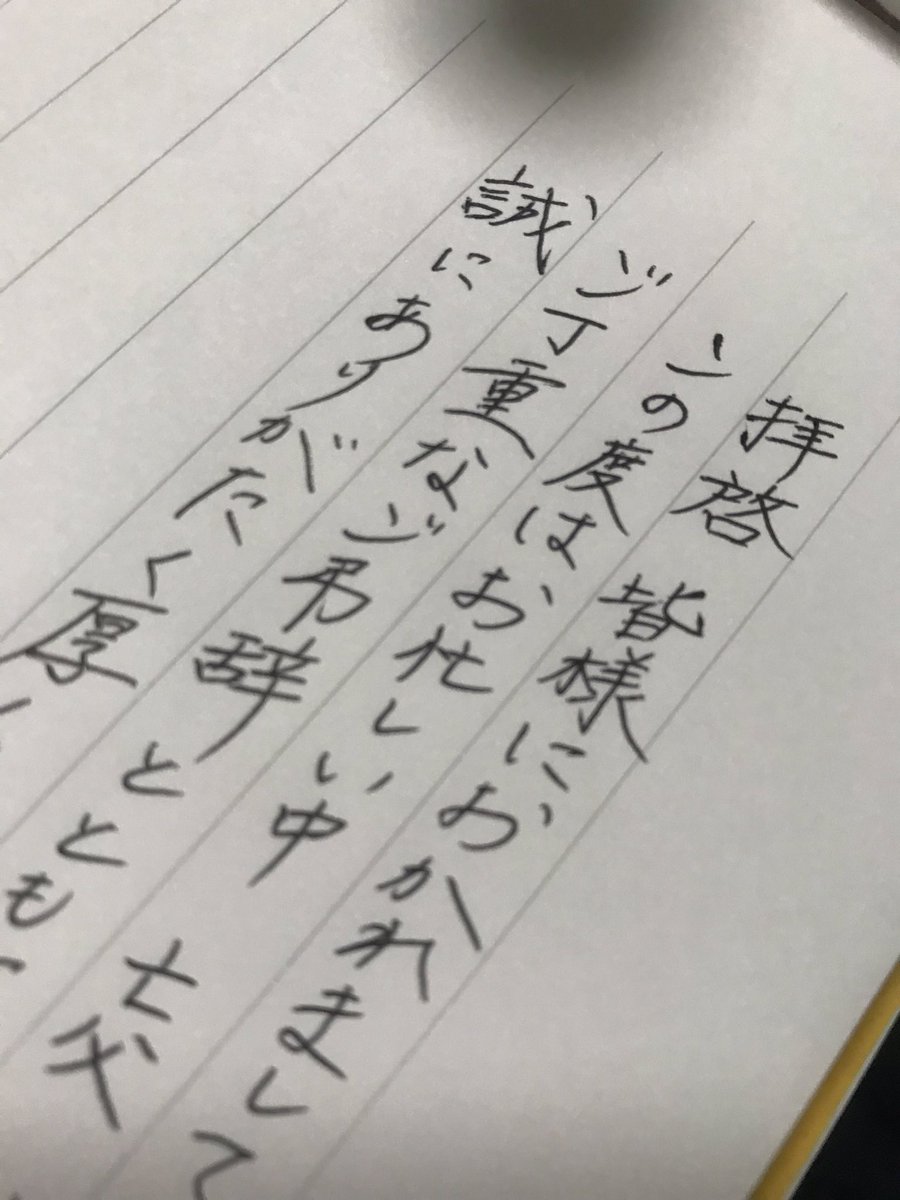 拝啓 皆様におかれまして
この度は、お忙しい中 亡父
ご丁重なご弔辞とともに
誠にありがたく厚